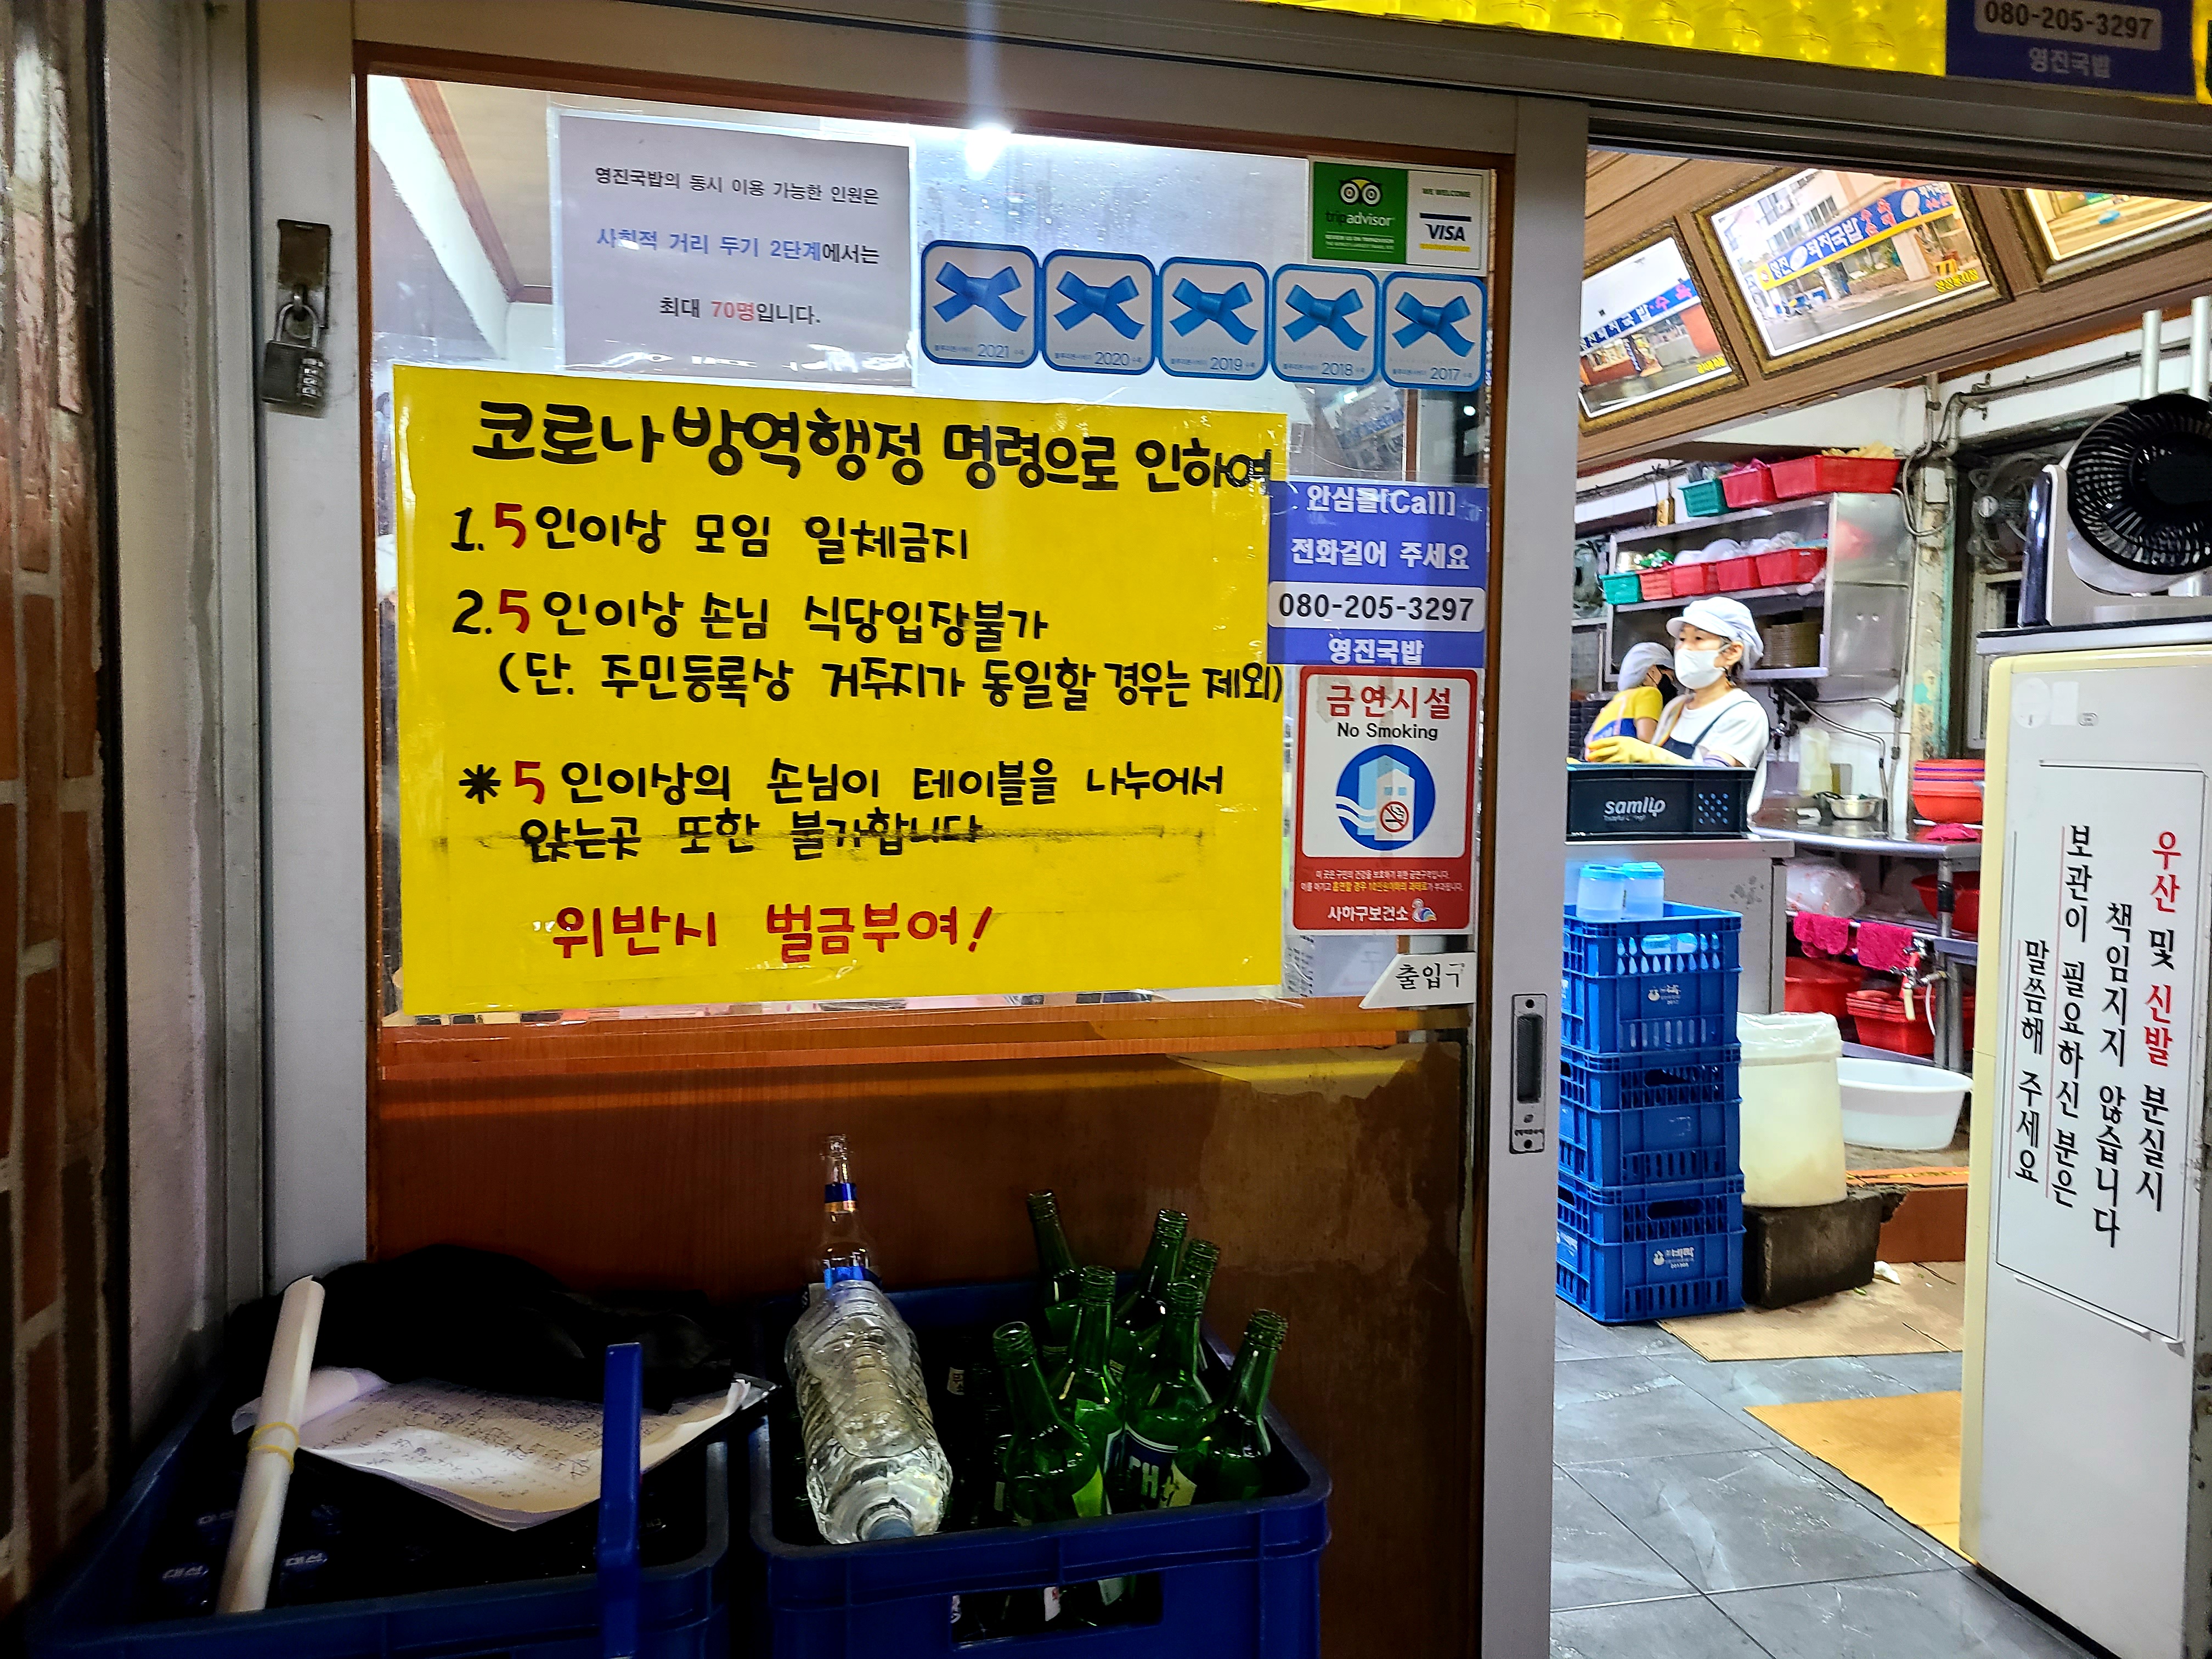 080-205-3297
영진국밥
영진국밥의 동시 이용 가능한 인원은
사회적 거리 두기 2단계에서는
최대 70명입니다.
tripadvisor
WE WELCOME
VISA
2021
2020
2019
2018
2017
코로나 방역행정 명령으로 인하여
1. 5인이상 모임 일체금지
2. 5인이상 손님 식당입장불가
(단. 주민등록상 거주지가 동일할 경우는 제외)
* 5인이상의 손님이 테이블을 나누어서
앉는곳 또한 불가합니다
위반시 벌금부여!
안심콜[Call]
전화걸어 주세요
080-205-3297
영진국밥
금연시설
No Smoking
사하구보건소
출입구
돼지국밥
samlip
우산 및 신발 분실시
책임지지 않습니다
보관이 필요하신 분은
말씀해 주세요
대선
대선